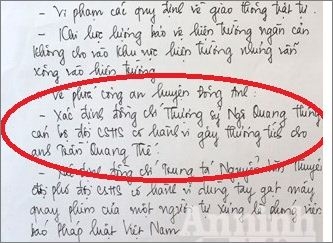 - Vi phạm các quy định về giao thông trật tự.
- Khi lực lượng bảo vệ hiện trường ngăn cản
không cho vào khu vực hiện trường nhưng vẫn
xông vào hiện trường.
Về phía công an huyện Đông Anh:
- Xác định đồng chí Thượng sỹ Ngô Quang Hùng
cán bộ đội CSHS có hành vi gây thương tích cho
anh Trần Quang Thế.
- Xác định đồng chí Trung tá
đội phó đội CSHS có hành vi dùng tay, gạt máy
quay phim của một người tự xưng là phóng viên
báo Pháp luật Việt Nam
An ninh